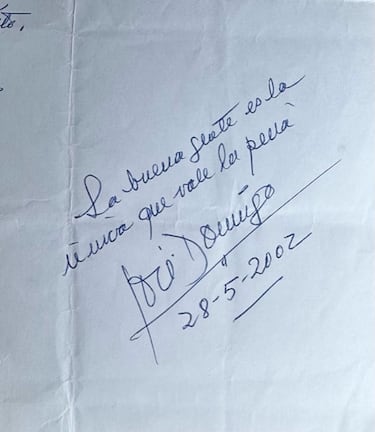 La buena gente es la
única que vale la pena
José Domingo
28-5-2002